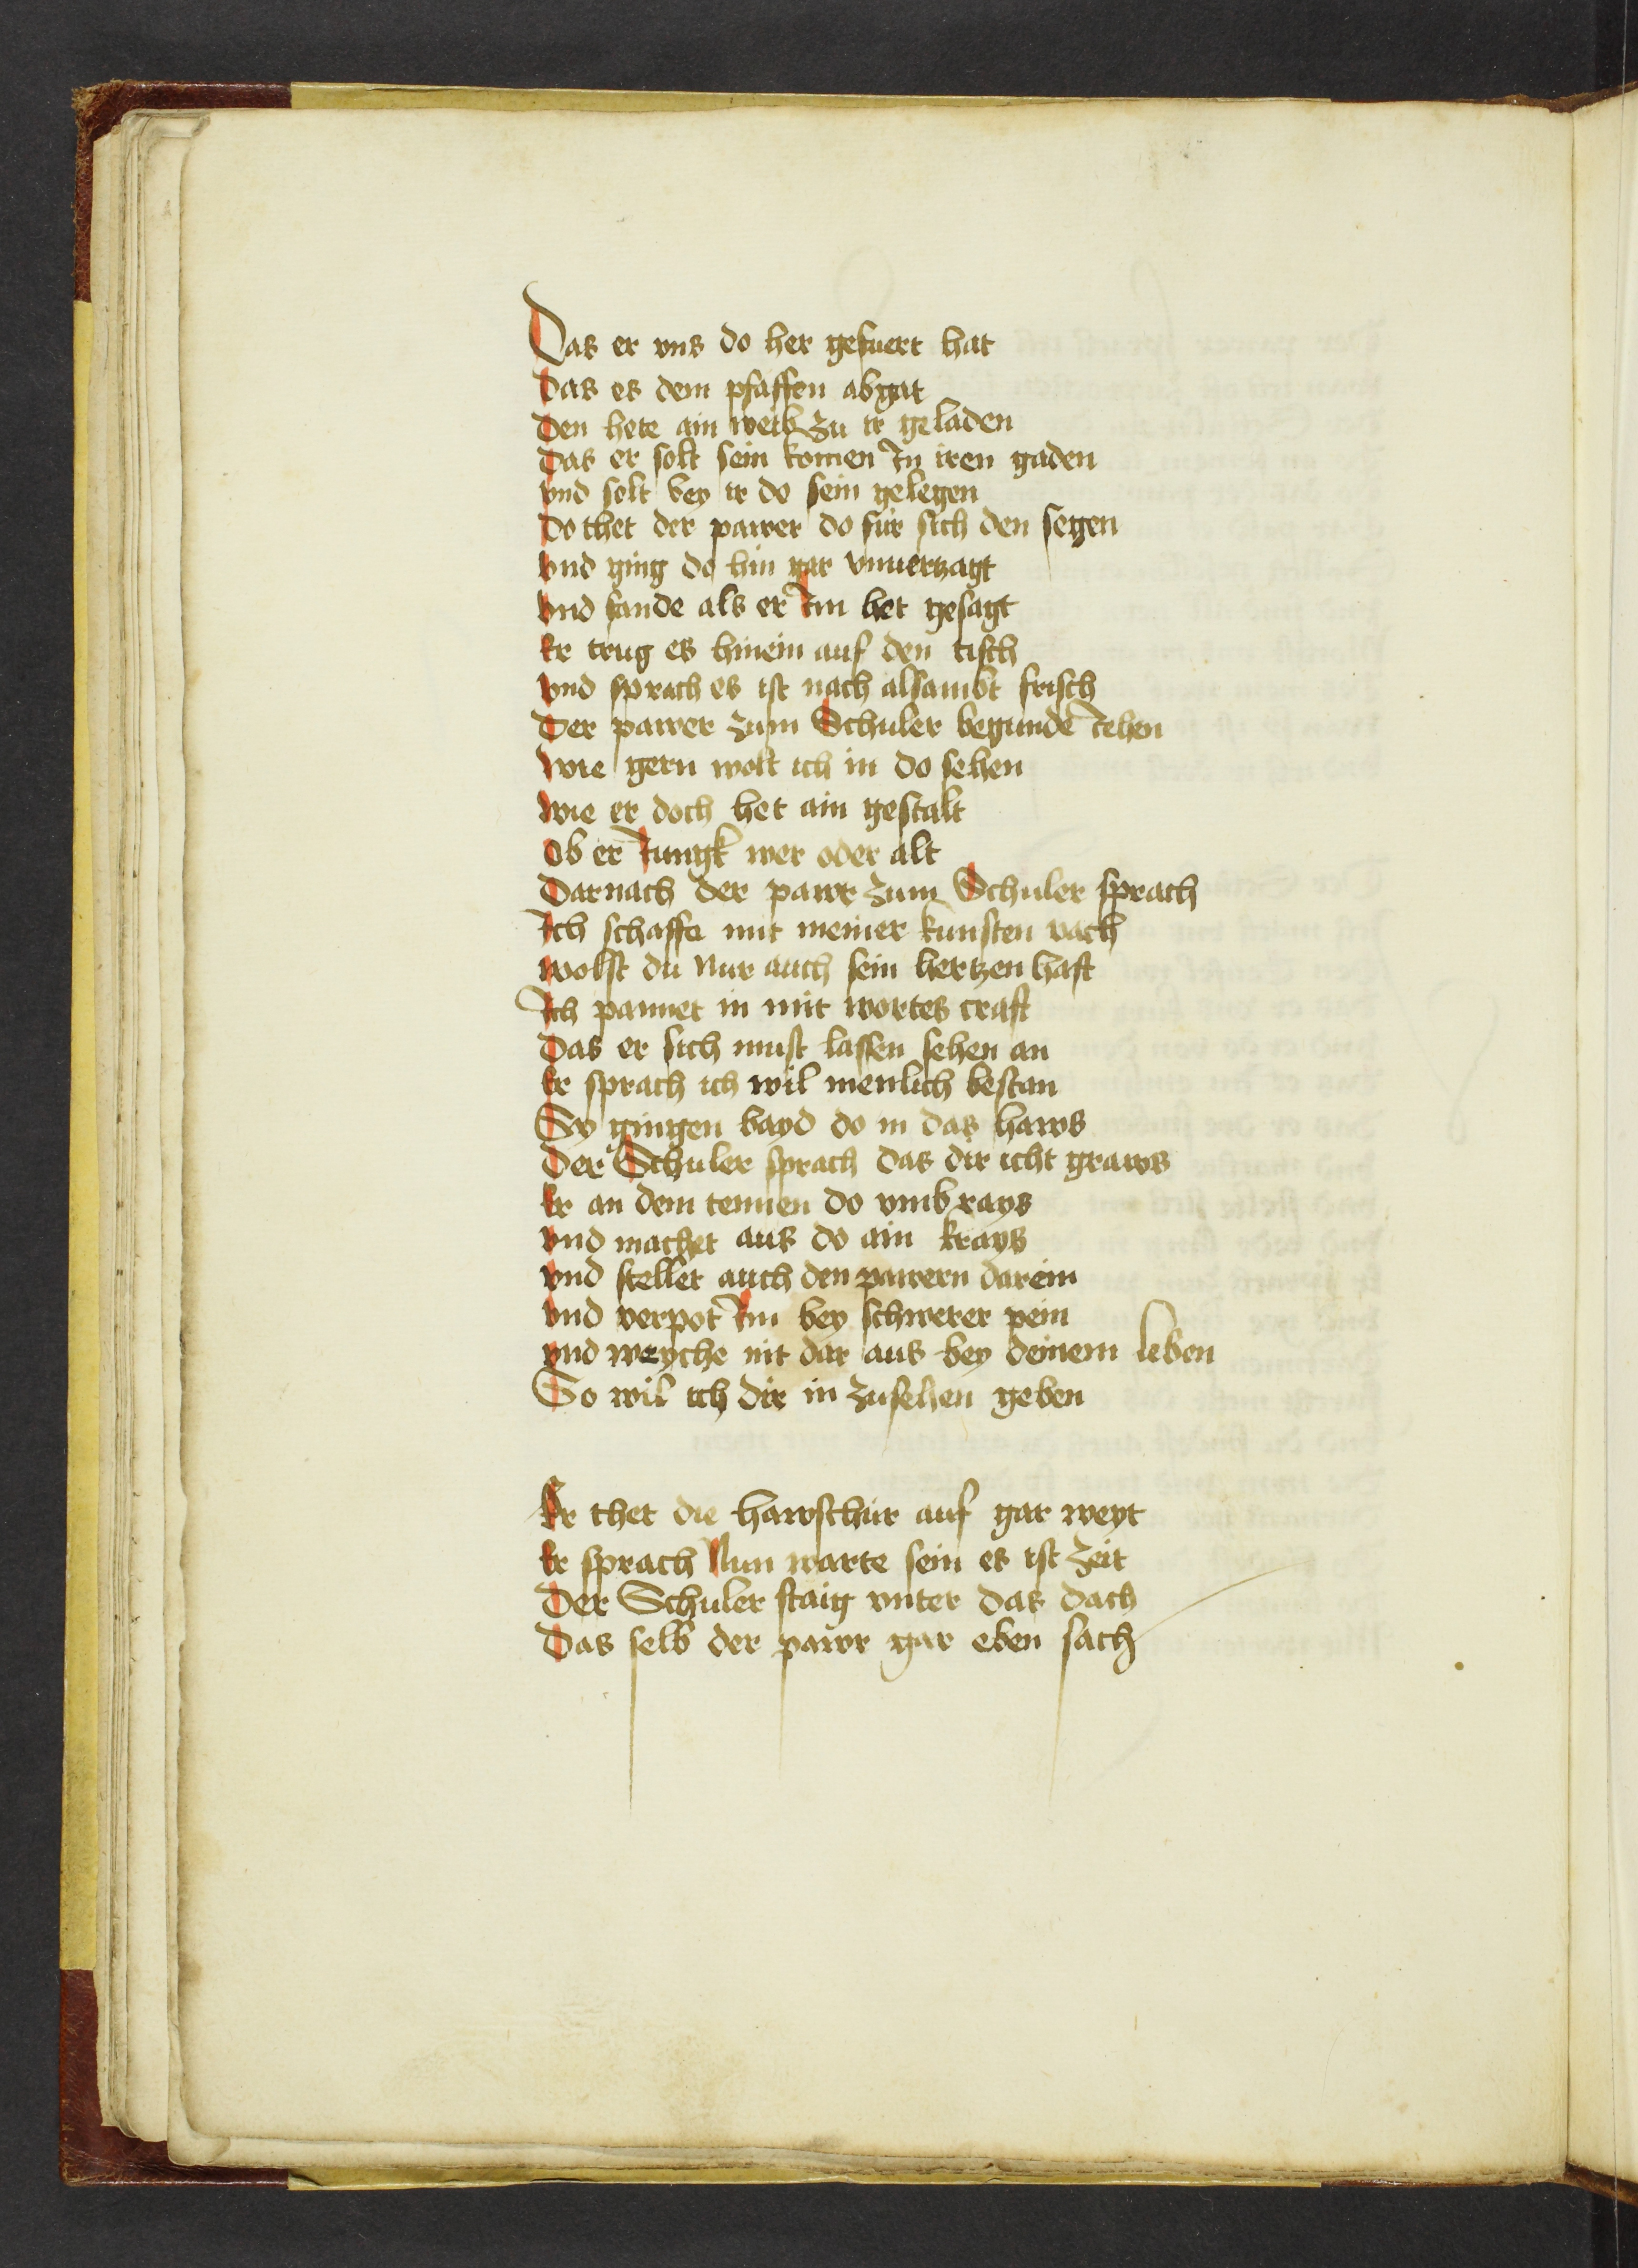 Das er vns do her gefuert hat
Das es dem pfaffen abgat
Den hete ain weib zu ir geladen
Das er solt sein komen In iren gaden
vnd solt bey ir do sein gelegen
Do thet der pawer do für sich den segen
vnd ging do hin gar vnuerzagt
vnd fande als er Im het gesagt
Er trug es hinein auf den tisch
vnd sprach es ist nach alsambt frisch
Der pawer zum Schuler begunde Iehen
wie gern wolt ich in do sehen
wie er doch het ain gestalt
Ob er Jungk wer oder alt
Darnach der pawr zum Schuler sprach
Ich schaffe mit meiner kunsten vach
wolst du Nur auch sein hertzenhaft
Ich pannet in mit wortes craft
Das er sich must lassen sehen an
Er sprach ich wil menlich bestan
So gingen bayd do in das haws
Der Schuler sprach das dir icht graws
Er an dem tennen do vmb rays
vnd machet aus do ain krays
vnd stellet auch den pawern darein
vnd verpot Im bey schwerer pein
vnd weyche nit dar aus bey deinem leben
So wil ich dir in zusehen geben
Er thet die hawsthür auf gar weyt
Er sprach Nun warte sein es ist zeit
Der Schuler staig vnter das dach
Das selb der pawr gar eben sach